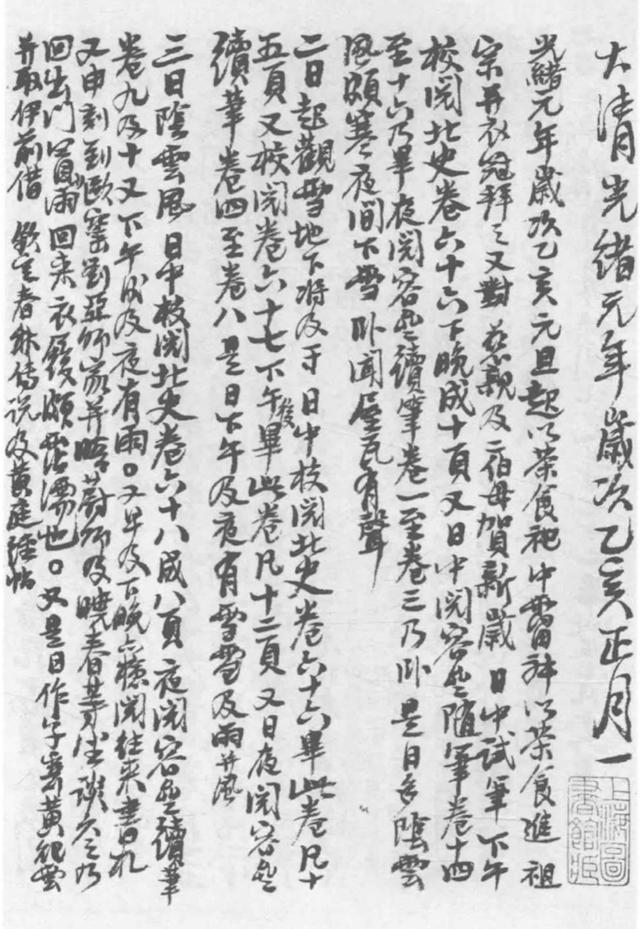 大清光緒元年歲次乙亥正月一
光緒元年歲次乙亥元旦起以茶食祀中霤神以茶食進 祖
宗并衣冠拜之又對 慈親及二伯母賀新歲 日中試筆下午
校閱北史卷六十六下晚成十頁又日中閱容齋隨筆卷十四
至十六乃畢夜閱容齋續筆卷一至卷三乃卧是日多陰雲
風頗寒夜間下雪卧聞屋瓦有聲
二日起觀雪地下將及寸日中校閱北史卷六十六畢此卷凡十
五頁又校閱卷六十七下午後畢此卷凡十二頁又日夜閱容齋
續筆卷四至卷八是日下午及夜有雪雪及雨并風
三日陰雲風日中校閱北史卷六十八成八頁夜閱容齋續筆
卷九及十又下午及夜有雨。又早及下晚亦檢閱往來書札
又申刻到歐窰劉亞師家并晤蔚師及曉春等坐談久之乃
回出門冒雨回來衣履頗霑濡也。又是日作字寄黃杞雲
并取伊前借 欽定春秋傳說及黃庭經帖
上海圖書館藏